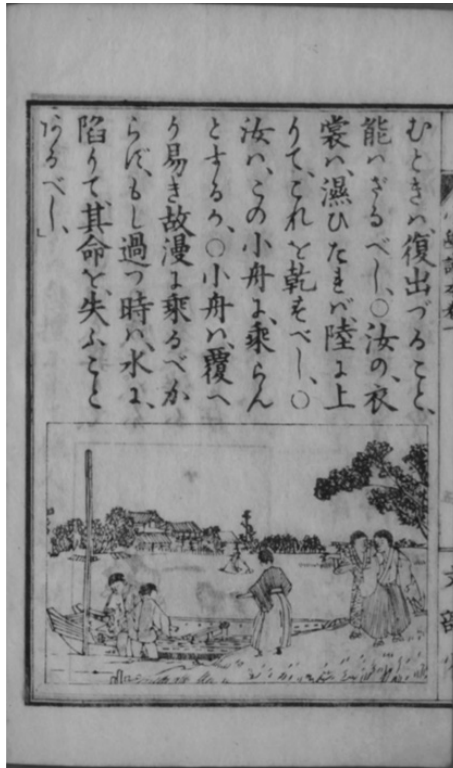 むときハ、復出づること、
能ハざるべし、○汝の、衣
裳ハ、濕ひたれバ、陸に上
りて、これを乾すべし、○
汝ハ、この小舟に、乗らん
とするか、○小舟ハ、覆へ
り易き故漫に乗るべか
らず、もし過つ時ハ、水に、
陷りて、其命を、失ふこと
あるべし、」